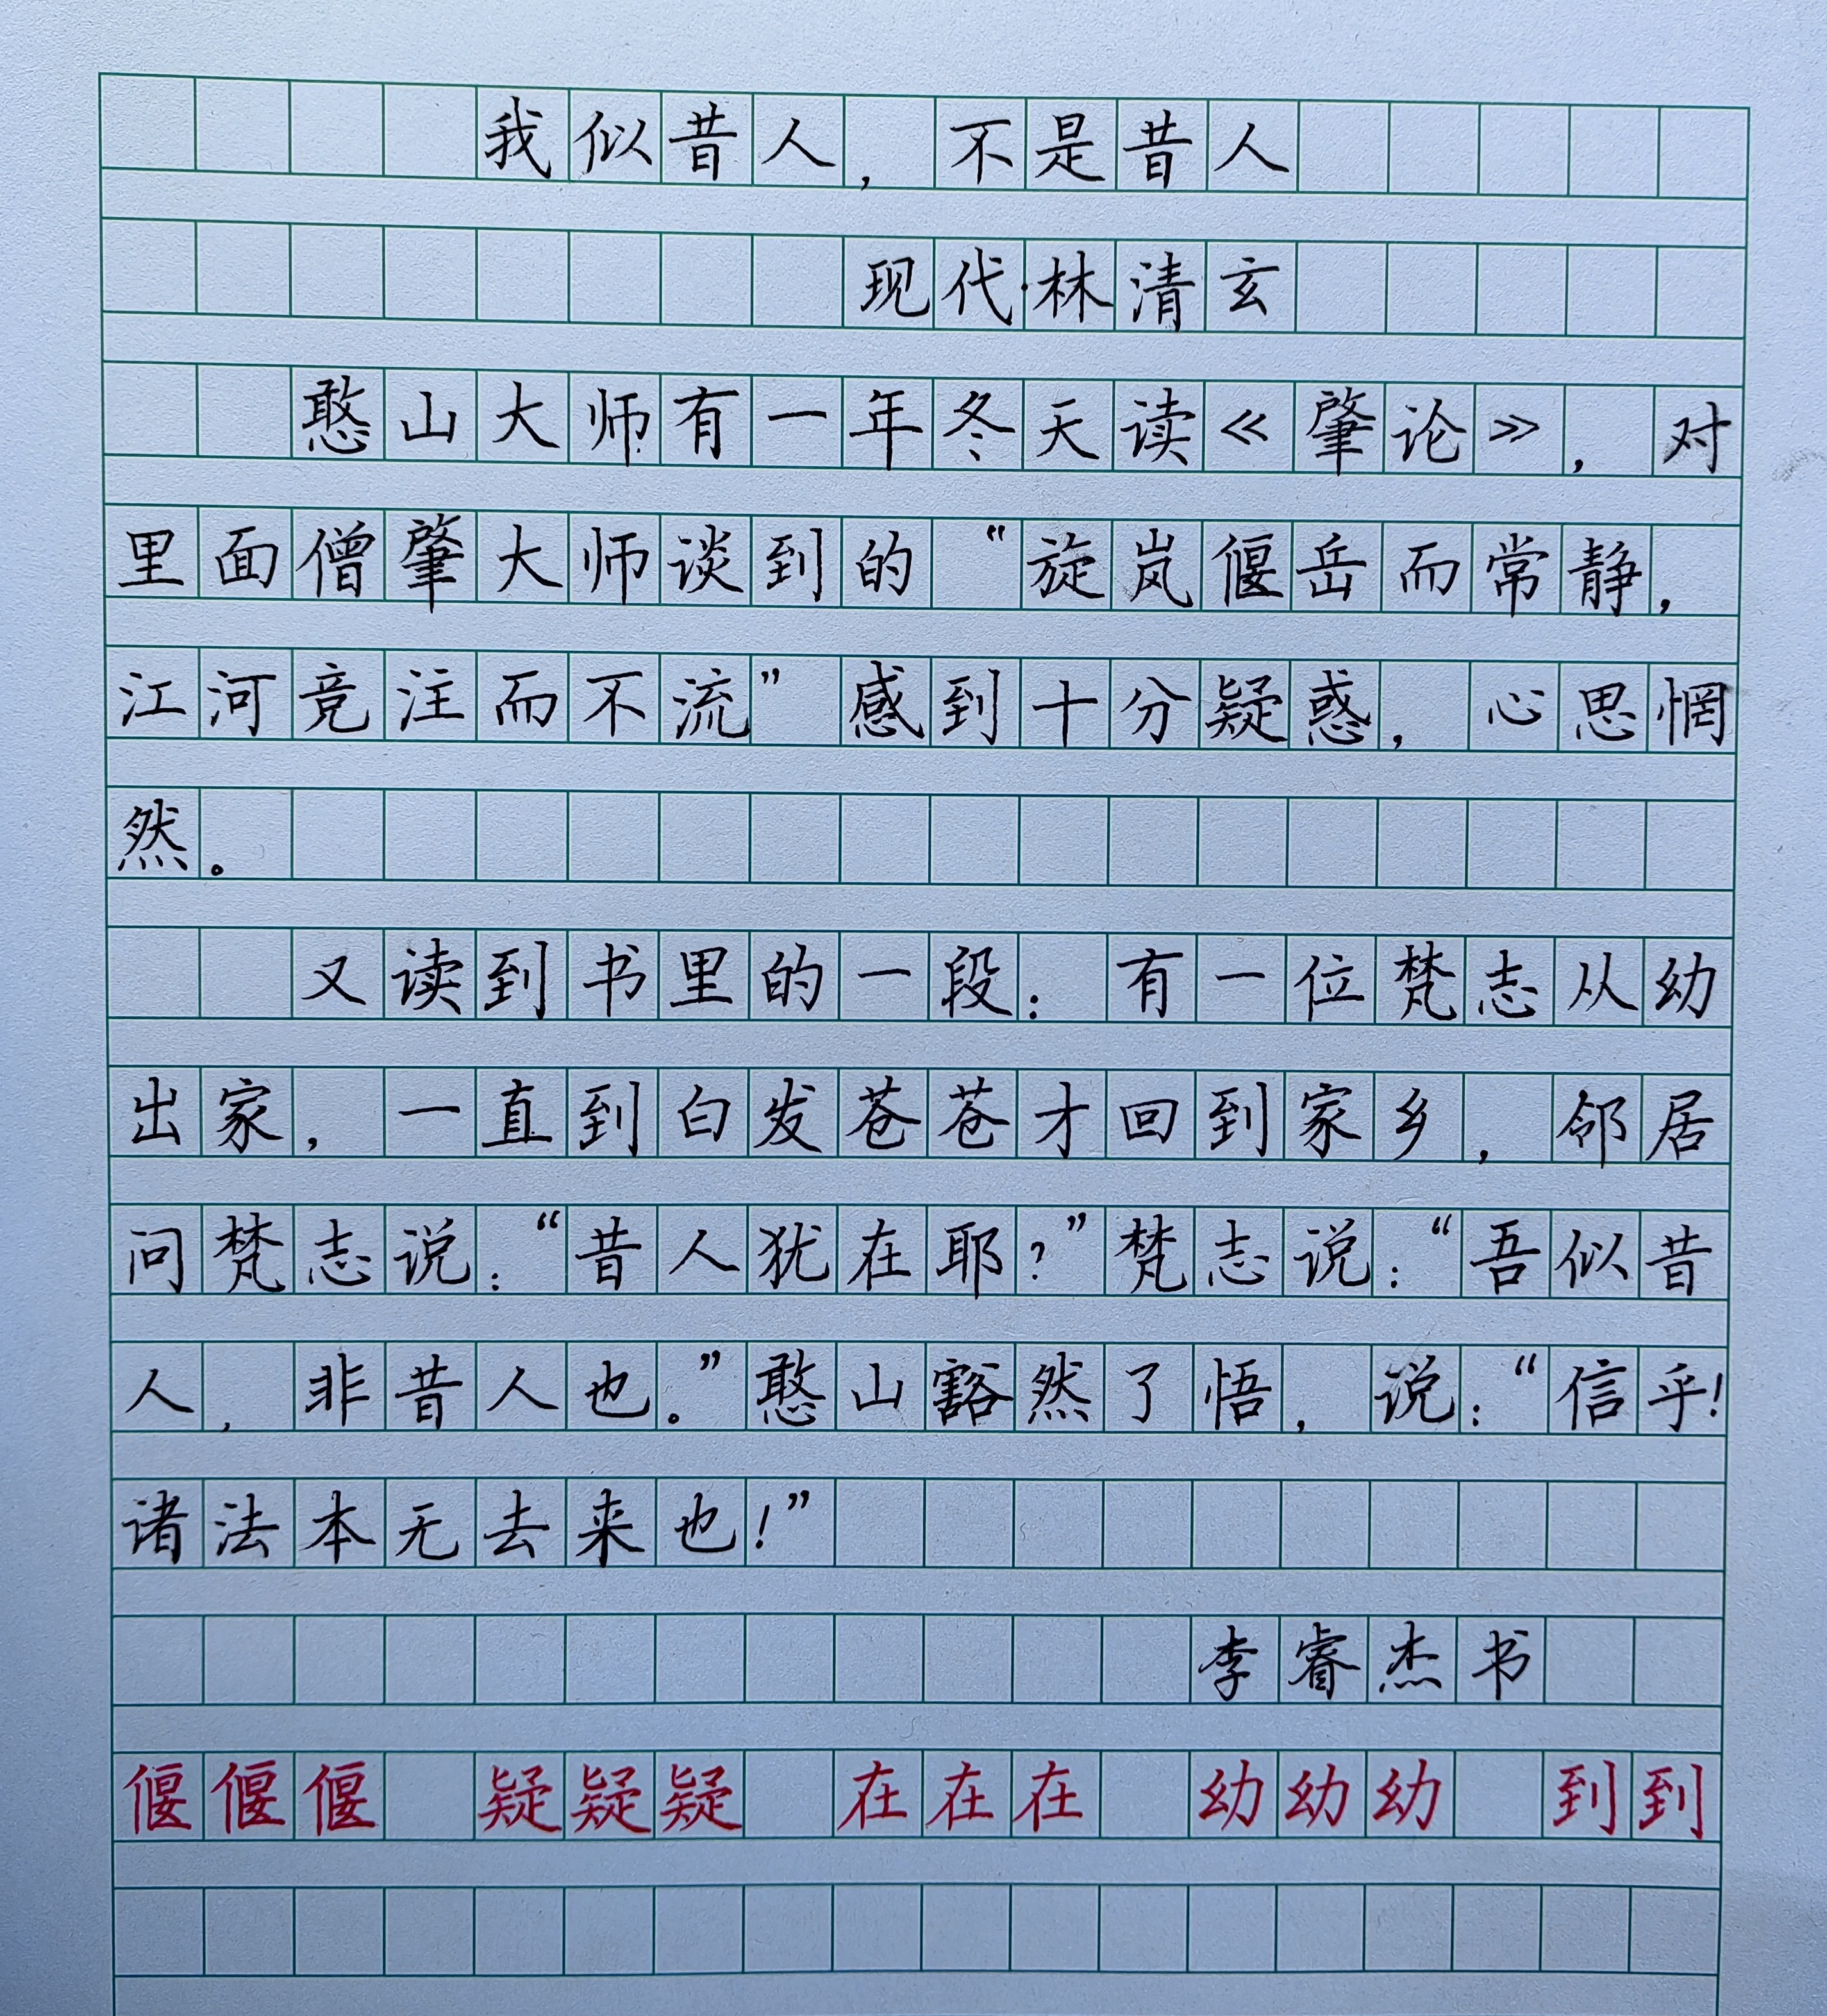 我似昔人，不是昔人
现代·林清玄
憨山大师有一年冬天读《肇论》，对
里面僧肇大师谈到的“旋岚偃岳而常静，
江河竞注而不流”感到十分疑惑，心思惘
然。
又读到书里的一段：有一位梵志从幼
出家，一直到白发苍苍才回到家乡，邻居
问梵志说：“昔人犹在耶？”梵志说：“吾似昔
人，非昔人也。”憨山豁然了悟，说：“信乎！
诸法本无去来也！”
李睿杰书
偃偃偃 疑疑疑 在在在 幼幼幼 到到